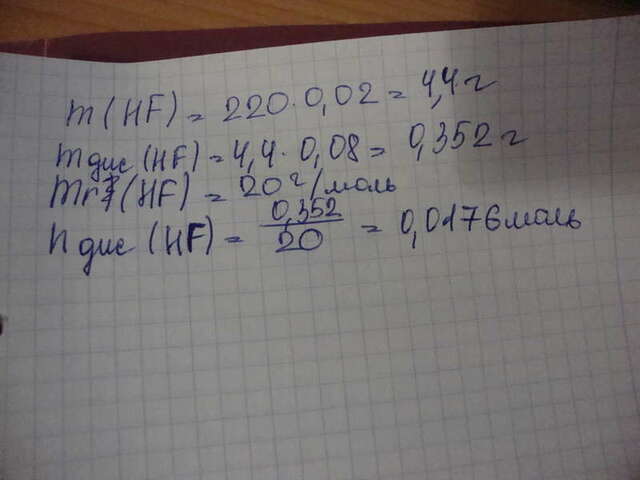 m(HF) = 220·0,02 = 4,4г
mдис(HF) = 4,4·0,08 = 0,352г
Mr(HF) = 20г/моль
n дис (HF) = 0,352/20 = 0,0176моль